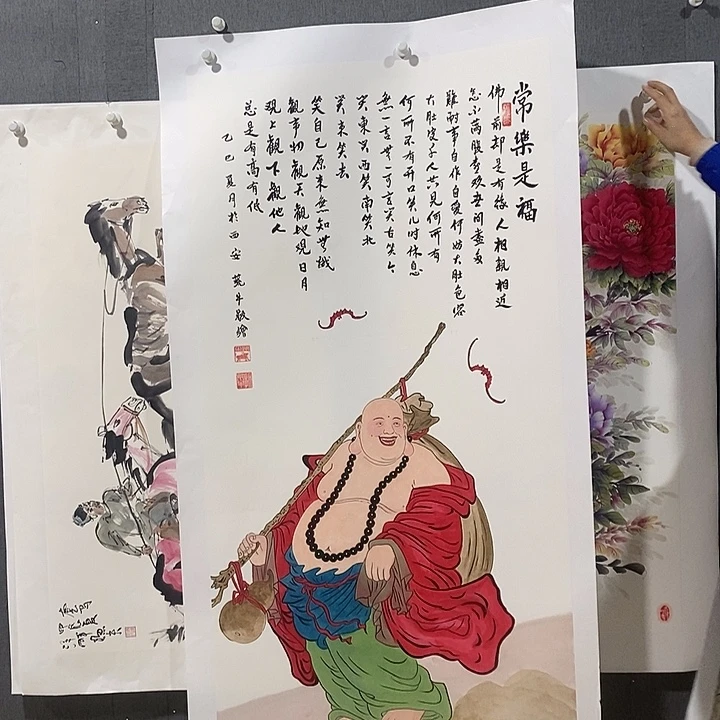 常樂是福
佛前却是有緣人相親相近
怎不滿腹喜欢世間盡多
難耐事自作自受何妨大肚包容
大肚 人共見何所有
何所不有開口笑几時休息
無一言無一可言笑古笑今
笑東笑西笑南笑北
笑來笑去
笑自己原來無知無識
觀事物觀天觀地觀日月
觀上觀下觀他人
總是有高有低
乙巳夏月於西安 荒牛敬繪